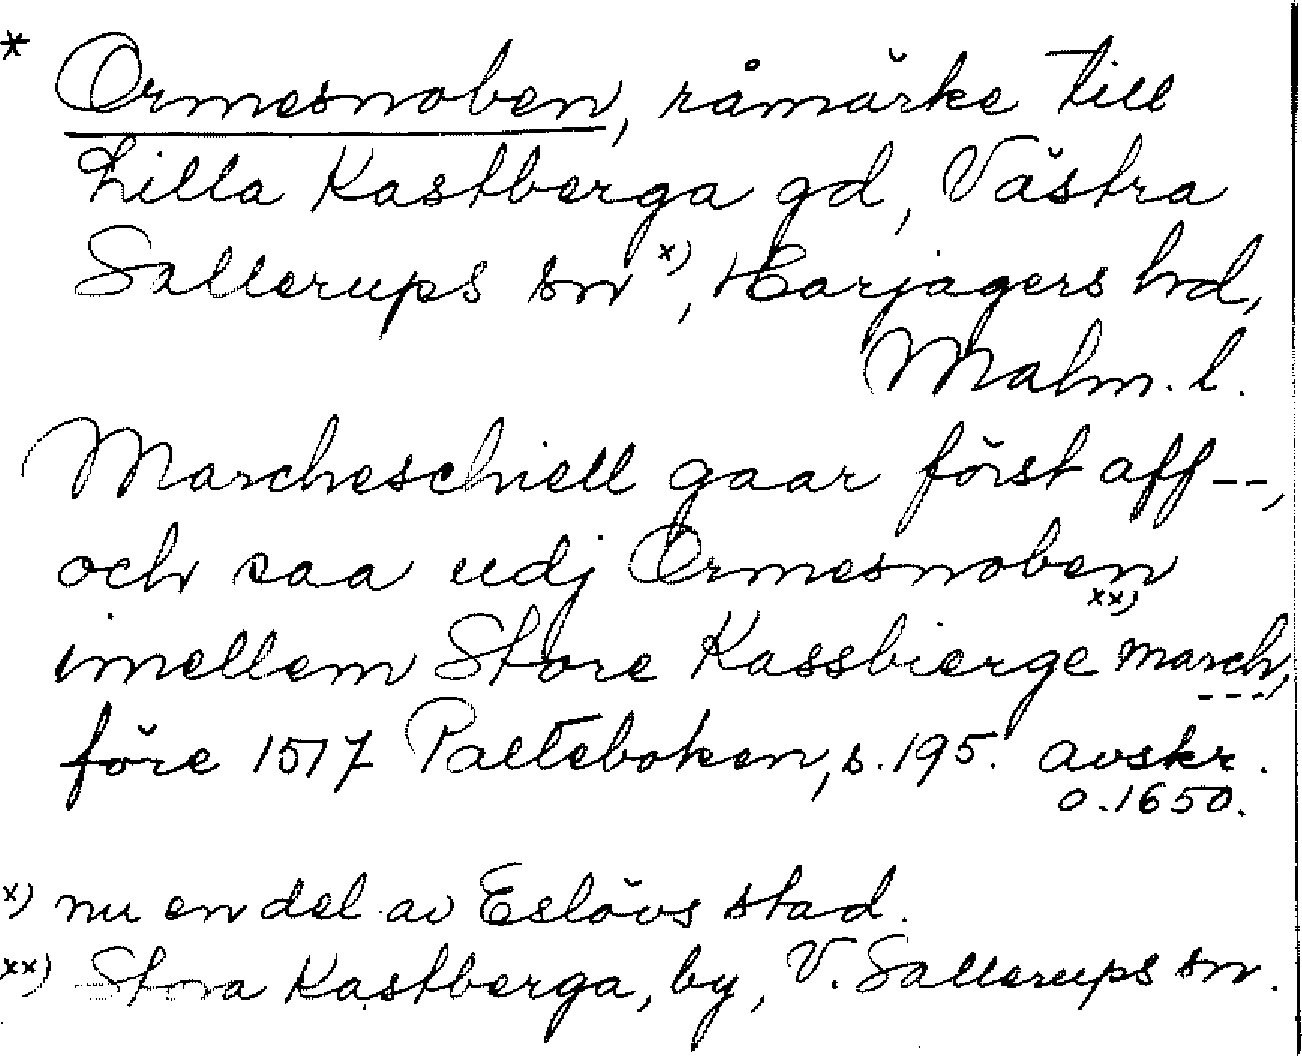 * Ormesnoben, råmärke till
Lilla Kastberga gd, Västra
Sallerups sn x), Harjagers hd,
Malm. l.
Marcheschiell gaar först aff --,
och saa udj Ormesnoben
imellem Store Kassbierge xx) march,
---
före 1517 Palteboken, s. 195. avskr.
o. 1650.
x) nu en del av Eslövs stad.
xx) Stora Kastberga, by, V. Sallerups sn.